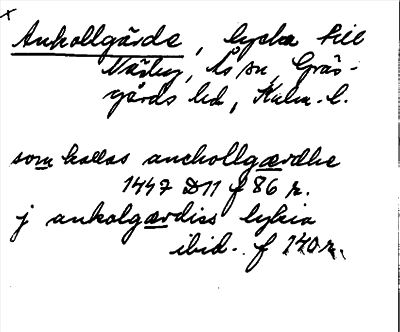 x
Ankollgärde, lycka till
Näsby, Ås sn, Gräs-
gårds hd, Kalm. l.
som kallas anchollgærdhe
1447 D11 f 86 r.
j ankolgærdiss lykia
ibid. f 140 r.